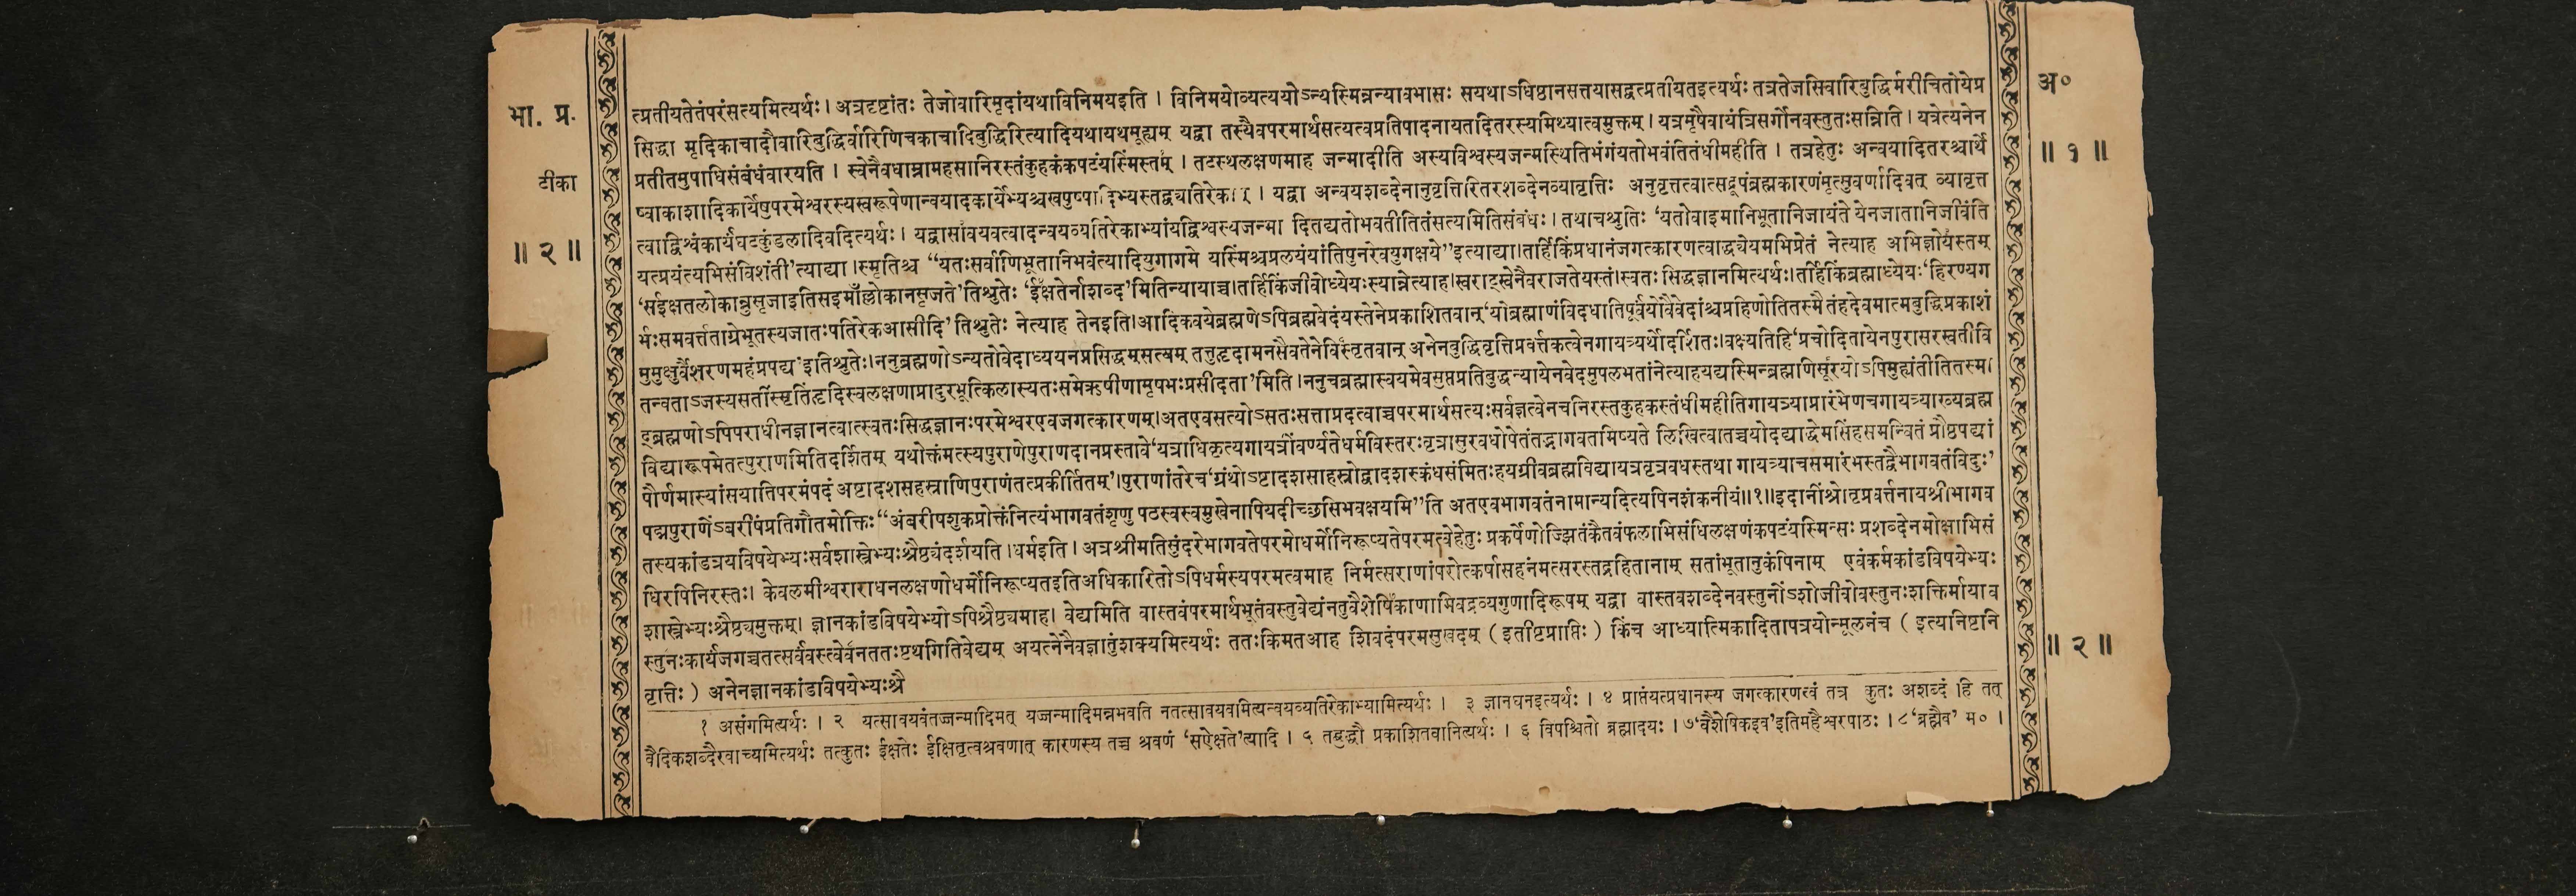 भा. प्र.
टीका
॥ २ ॥
अ०
॥ १ ॥
॥ २ ॥
त्प्रतीयतेतंपरंसत्यमित्यर्थः। अत्रदृष्टांतः तेजोवारिमृदांयथाविनिमयइति । विनिमयोव्यत्ययोऽन्यस्मिन्नन्यावभासः सयथाऽधिष्ठानसत्तयासद्वत्प्रतीयतइत्यर्थः तत्रतेजसिवारिबुद्धिर्मरीचितोयेप्र
सिद्धा मृदिकाचादौवारिबुद्धिर्वारिणिचकाचादिबुद्धिरित्यादियथायथमूह्यम् यद्वा तस्यैवपरमार्थसत्यत्वप्रतिपादनायतदितरस्यमिथ्यात्वमुक्तम्। यत्रमृषैवायंत्रिसर्गोनवस्तुतःसन्निति। यत्रेत्यनेन
प्रतीतमुपाधिसंबंधंवारयति । स्वेनैवधाम्नामहसानिरस्तंकुहकंकपटंयस्मिंस्तम् । तटस्थलक्षणमाह जन्मादीति अस्यविश्वस्यजन्मस्थितिभंगंयतोभवंतितंधीमहीति । तत्रहेतुः अन्वयादितरश्चार्थे
ष्वाकाशादिकार्येषुपरमेश्वरस्यस्वरूपेणान्वयादकार्येभ्यश्चखपुष्पादिभ्यस्तद्व्यतिरेकात् । यद्वा अन्वयशब्देनानुवृत्तिरितरशब्देनव्यावृत्तिः अनुवृत्तत्वात्सद्रूपंब्रह्मकारणंमृत्सुवर्णादिवत् व्यावृत्त
त्वाद्विश्वंकार्यंघटकुंडलादिवदित्यर्थः। यद्वासावयवत्वादन्वयव्यतिरेकाभ्यांयद्विश्वस्यजन्मा दितद्यतोभवतीतितंसत्यमितिसंबंधः। तथाचश्रुतिः ‘यतोवाइमानिभूतानिजायंते येनजातानिजीवंति
यत्प्रयंत्यभिसंविशंती’त्याद्या।स्मृतिश्च “यतःसर्वाणिभूतानिभवंत्यादियुगागमे यस्मिंश्चप्रलयंयांतिपुनरेवयुगक्षये”इत्याद्या।तर्हिकिंप्रधानंजगत्कारणत्वाद्ध्येयमभिप्रेतं नेत्याह अभिज्ञोयस्तम्
‘सईक्षतलोकान्नुसृजाइतिसइमाँल्लोकानसृजते’तिश्रुतेः ‘ईक्षतेर्नाशब्द’मितिन्यायाच्च।तर्हिकिंजीवोध्येयःस्यान्नेत्याह।स्वराट्स्वेनैवराजतेयस्तं।स्वतः सिद्धज्ञानमित्यर्थः।तर्हिकिंब्रह्माध्येयः‘हिरण्यग
र्भःसमवर्त्तताग्रेभूतस्यजातःपतिरेकआसीदि’तिश्रुतेः नेत्याह तेनइति।आदिकवयेब्रह्मणेऽपिब्रह्मवेदंयस्तेनेप्रकाशितवान्‘योब्रह्माणंविदधातिपूर्वंयोवैवेदांश्चप्रहिणोतितस्मै तंहदेवमात्मबुद्धिप्रकाशं
मुमुक्षुर्वैशरणमहंप्रपद्य’इतिश्रुतेः।ननुब्रह्मणोऽन्यतोवेदाध्ययनप्रसिद्धम्सत्यम् तत्तुहृदामनसैवतेनेविस्तृतवान् अनेनबुद्धिवृत्तिप्रवर्त्तकत्वेनगायत्र्यर्थोदर्शितः।वक्ष्यतिहि‘प्रचोदितायेनपुरासरस्वतीवि
तन्वताऽजस्यसतींस्मृतिंहृदिस्वलक्षणाप्रादुरभूत्किलास्यतःसमेऋषीणामृषभःप्रसीदता’मिति।ननुचब्रह्मास्वयमेवसुप्तप्रतिबुद्धन्यायेनवेदमुपलभतांनेत्याहयद्यस्मिन्ब्रह्मणिसूरयोऽपिमुह्यंतीतितस्मा
द्ब्रह्मणोऽपिपराधीनज्ञानत्वात्स्वतःसिद्धज्ञानःपरमेश्वरएवजगत्कारणम्।अतएवसत्योऽसतःसत्ताप्रदत्वाच्चपरमार्थसत्यःसर्वज्ञत्वेनचनिरस्तकुहकस्तंधीमहीतिगायत्र्याप्रारंभेणचगायत्र्याख्यब्रह्म
विद्यारूपमेतत्पुराणमितिदर्शितम् यथोक्तंमत्स्यपुराणेपुराणदानप्रस्तावे‘यत्राधिकृत्यगायत्रींवर्ण्यतेधर्मविस्तरःवृत्रासुरवधोपेतंतद्भागवतमिष्यते लिखित्वातच्चयोदद्याद्धेमसिंहसमन्वितं प्रौष्ठपद्यां
पौर्णमास्यांसयातिपरमंपदं अष्टादशसहस्राणिपुराणंतत्प्रकीर्तितम्’।पुराणांतरेच‘ग्रंथोऽष्टादशसाहस्रोद्वादशस्कंधसंमितःहयग्रीवब्रह्मविद्यायत्रवृत्रवधस्तथा गायत्र्याचसमारंभस्तद्वैभागवतंविदुः’
पद्मपुराणेंऽबरीषंप्रतिगौतमोक्तिः“अंबरीषशुकप्रोक्तंनित्यंभागवतंशृणु पठस्वस्वमुखेनापियदीच्छसिभवक्षयमि”ति अतएवभागवतंनामान्यदित्यपिनशंकनीयं॥१॥इदानींश्रोतृप्रवर्त्तनायश्रीभागव
तस्यकांडत्रयविषयेभ्यःसर्वशास्त्रेभ्यःश्रैष्ठ्यंदर्शयति।धर्मइति। अत्रश्रीमतिसुंदरेभागवतेपरमोधर्मोनिरूप्यतेपरमत्वेहेतुः प्रकर्षेणोज्झितंकैतवंफलाभिसंधिलक्षणंकपटंयस्मिन्सः प्रशब्देनमोक्षाभिसं
धिरपिनिरस्तः। केवलमीश्वराराधनलक्षणोधर्मोनिरूप्यतइतिअधिकारितोऽपिधर्मस्यपरमत्वमाह निर्मत्सराणांपरोत्कर्षासहनंमत्सरस्तद्रहितानाम् सतांभूतानुकंपिनाम् एवंकर्मकांडविषयेभ्यः
शास्त्रेभ्यःश्रैष्ठ्यमुक्तम्। ज्ञानकांडविषयेभ्योऽपिश्रैष्ठ्यमाह। वेद्यमिति वास्तवंपरमार्थभूतंवस्तुवेद्यंनतुवैशेषिकाणामिवद्रव्यगुणादिरूपम् यद्वा वास्तवशब्देनवस्तुनोंऽशोजीवोवस्तुनःशक्तिर्मायाव
स्तुनःकार्यजगच्चतत्सर्वंवस्त्वेवनततःपृथगितिवेद्यम् अयत्नेनैवज्ञातुंशक्यमित्यर्थः ततःकिमतआह शिवदंपरमसुखदम् ( इतीष्टप्राप्तिः ) किंच आध्यात्मिकादितापत्रयोन्मूलनंच ( इत्यनिष्टनि
वृत्तिः ) अनेनज्ञानकांडविषयेभ्यःश्रै
१ असंगमित्यर्थः । २ यत्सावयवंतज्जन्मादिमत् यज्जन्मादिमन्नभवति नतत्सावयवमित्यन्वयव्यतिरेकाभ्यामित्यर्थः । ३ ज्ञानघनइत्यर्थः । ४ प्राप्तंयत्प्रधानस्य जगत्कारणत्वं तत्र कुतः अशब्दं हि तत्
वैदिकशब्दैरवाच्यमित्यर्थः तत्कुतः ईक्षतेः ईक्षितृत्वश्रवणात् कारणस्य तच्च श्रवणं ‘सऐक्षते’त्यादि । ५ तद्बुद्धौ प्रकाशितवानित्यर्थः । ६ विपश्चितो ब्रह्मादयः । ७‘वैशेषिकइव’इतिमहैश्वरपाठः । ८‘ब्रह्मैव’ म० ।